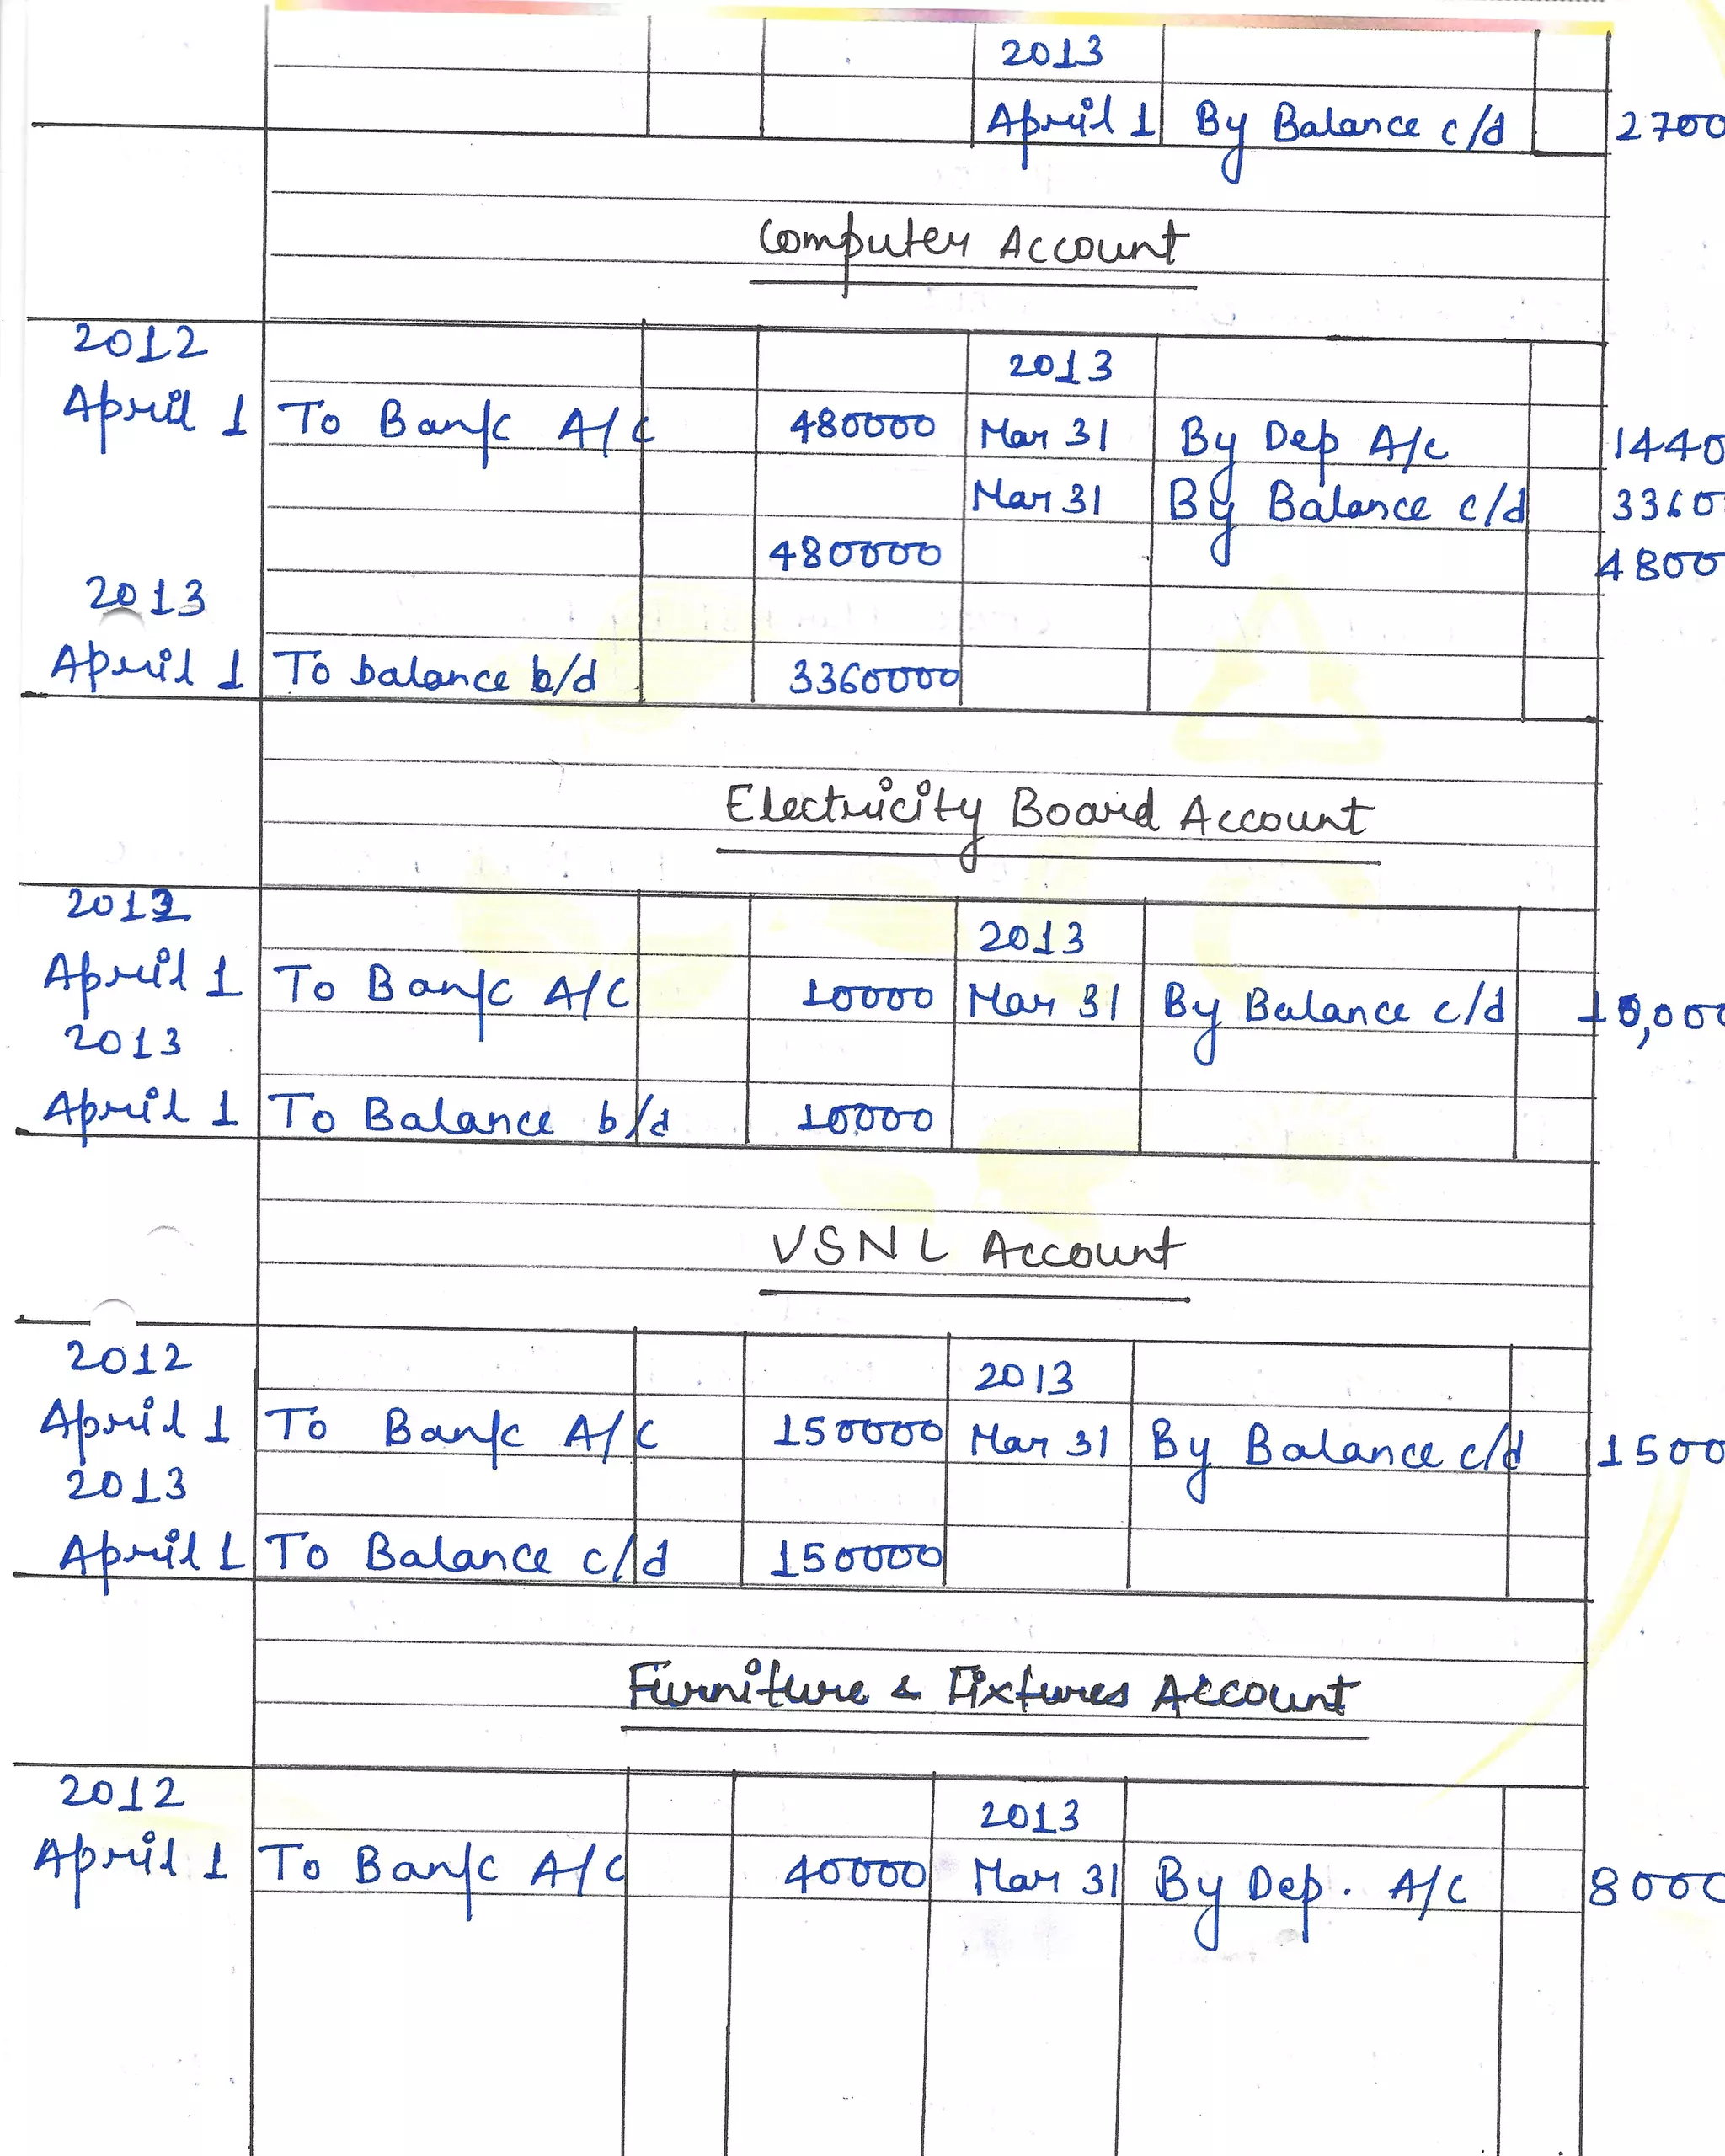 2013
April 1 By Balance c/d 2700
Computer Account
2012
2013
April 1 To Bank A/c 480000 Mar 31 By Dep A/c 1440
Mar 31 By Balance c/d 3360
480000 4800
2013
April 1 To balance b/d 3360000
Electricity Board Account
2012
2013
April 1 To Bank A/C 10000 Mar 31 By Balance c/d 10,000
2013
April 1 To Balance b/d 10000
VSNL Account
2012
2013
April 1 To Bank A/C 150000 Mar 31 By Balance c/d 1500
2013
April 1 To Balance c/d 150000
Furniture & Fixtures Account
2012
2013
April 1 To Bank A/C 40000 Mar 31 By Dep. A/C 8000